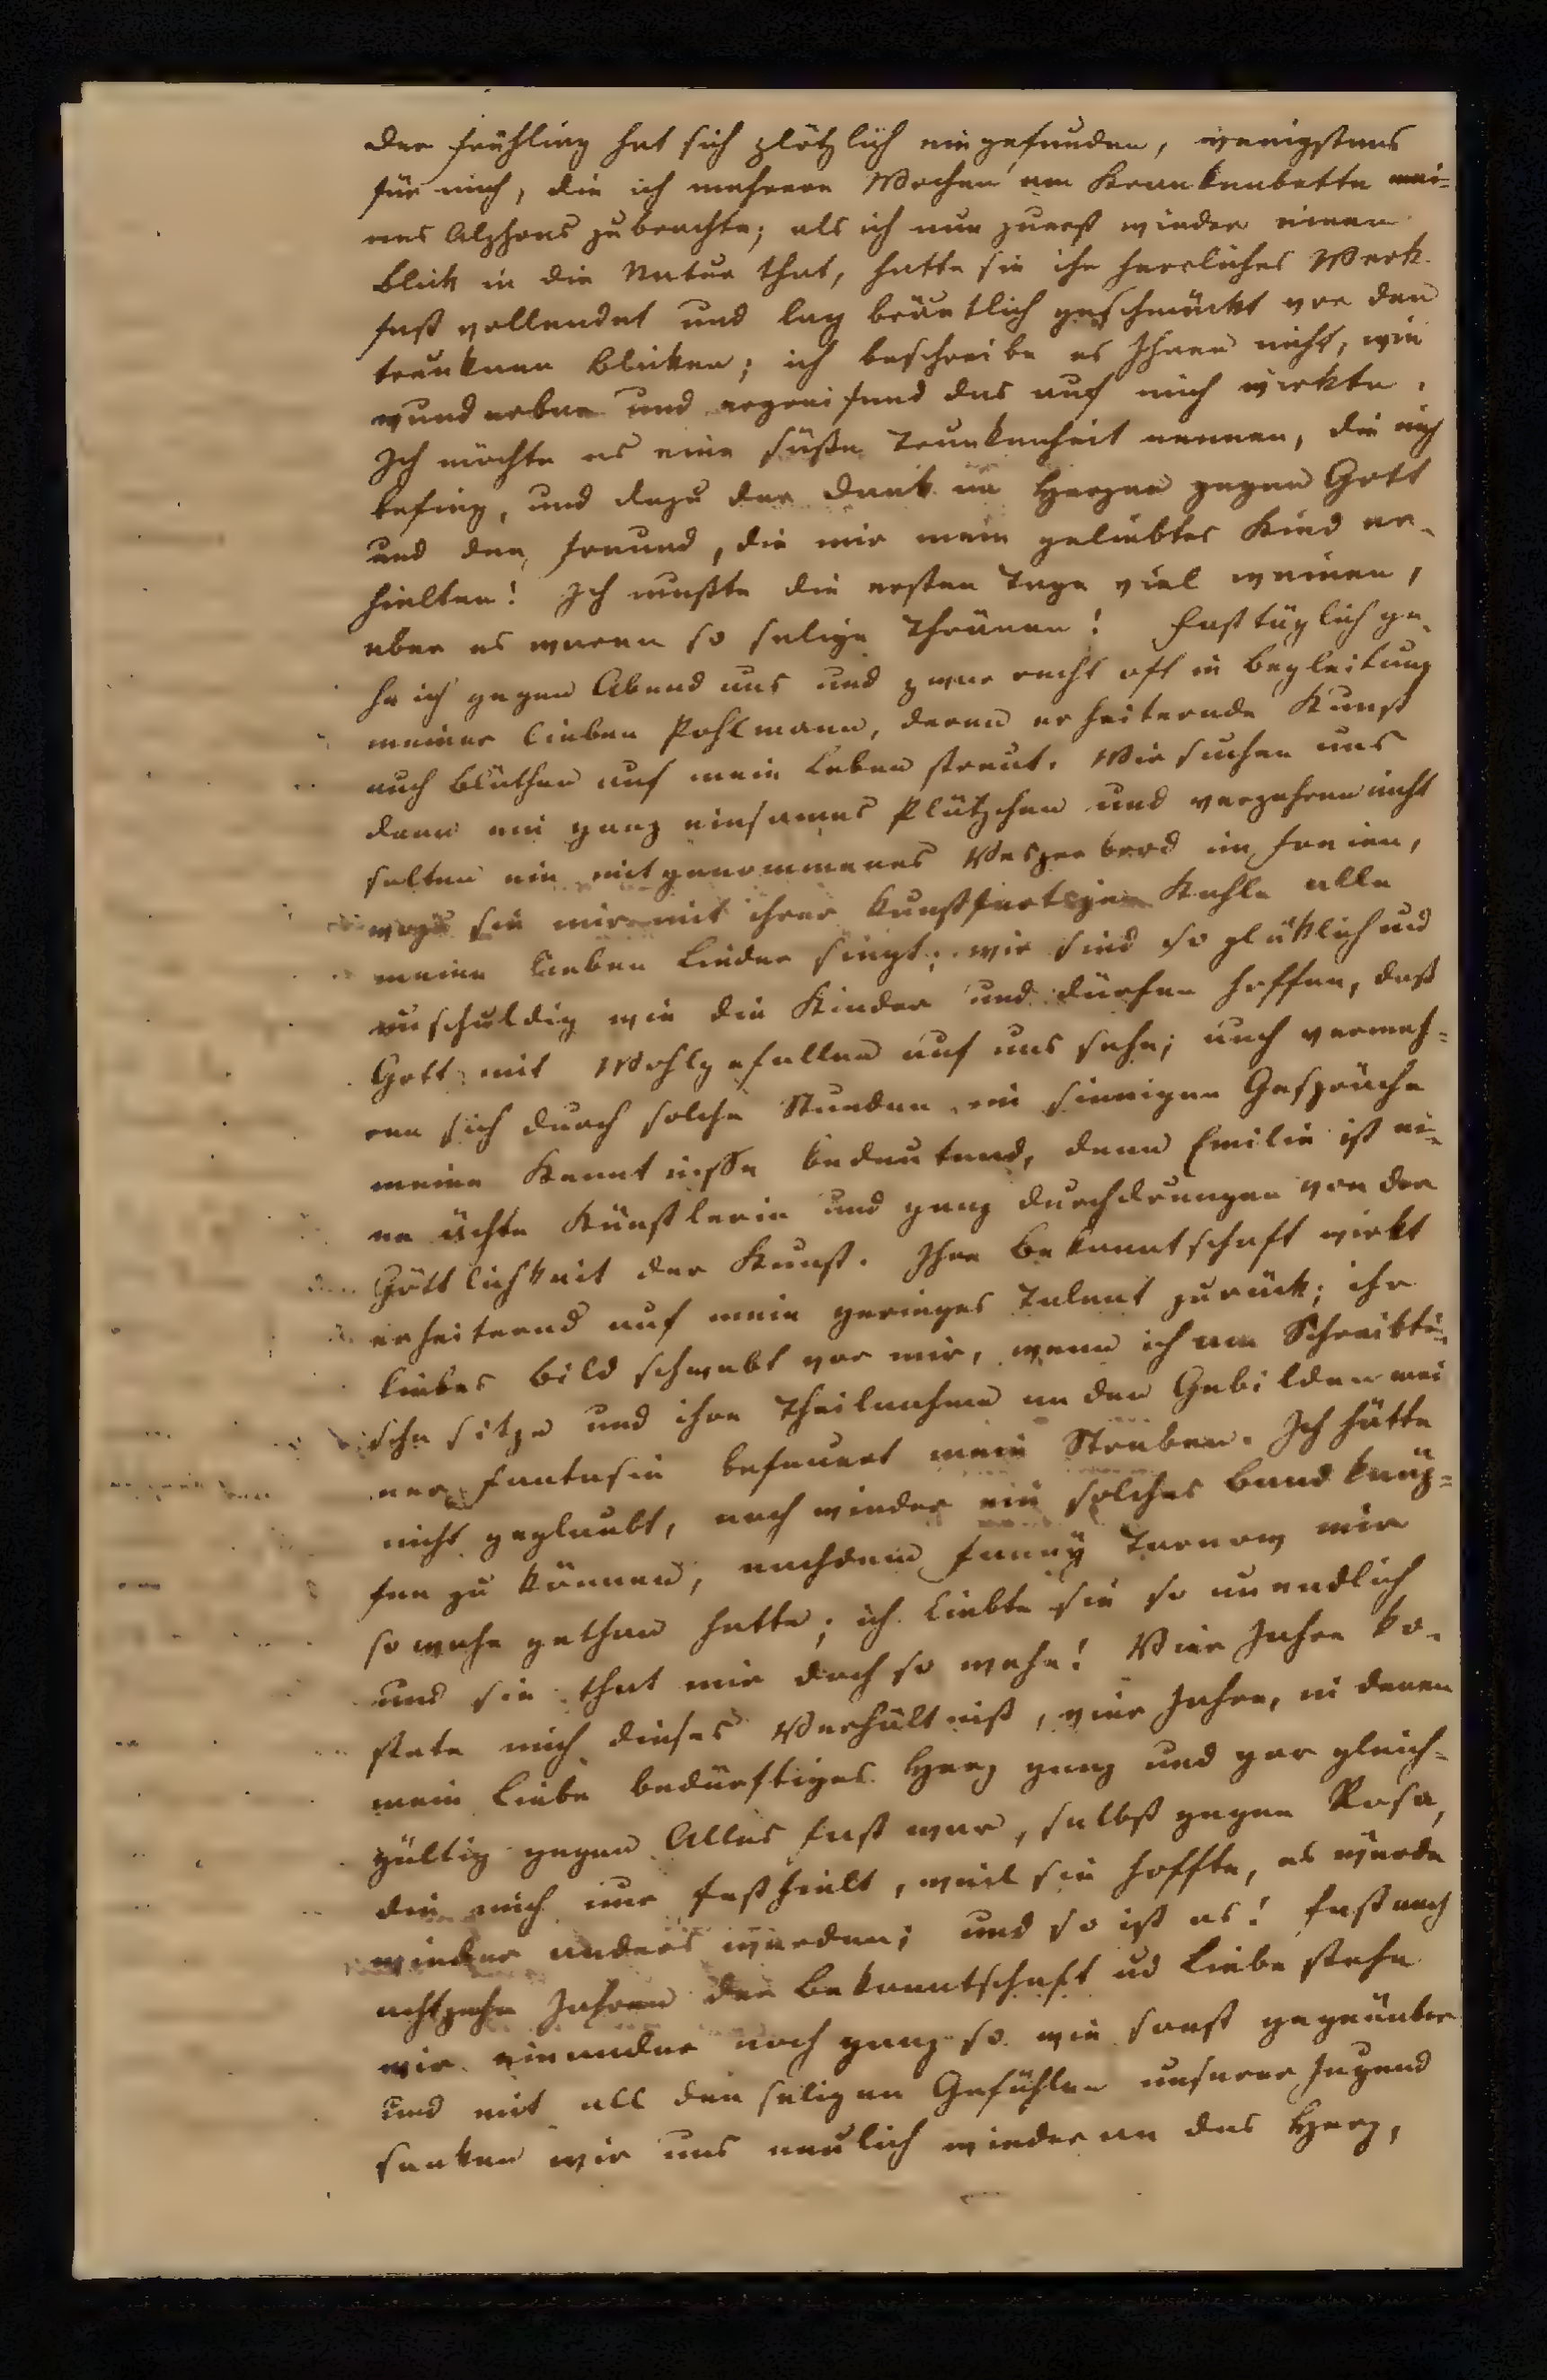 Der Frühling hat sich plötzlich eingefunden, wenigstens
für mich, die ich mehrere Wochen am Krankenbette mei=
nes Alphons zubrachte; als ich nun zuerst wieder einen
Blick in die Natur that, hatte sie ihr herrliches Werk
fast vollendet und lag bräutlich geschmückt vor den
trunknen Blicken; ich beschreibe es Ihnen nicht, wie
wunderbar und ergreifend das auf mich wirkte.
Ich möchte es eine süße Trunkenheit nennen, die mich
befing, und dazu der Dank im Herzen gegen Gott
und den Freund, die mir mein geliebtes Kind er-
hielten! Ich mußte die ersten Tage viel weinen,
aber es waren so selige Thränen! Fast täglich ge-
he ich gegen Abend aus und zwar recht oft in Begleitung
meiner lieben Pohlmann, deren erheiternde Kunst
auch Blüthen auf mein Leben streut. Wir suchen uns
dann ein ganz einsames Plätzchen und verzehren nicht
selten ein mitgenommenes Vesperbrod im Freien,
wozu sie mir mit ihrer kunstfertigen Kehle alle
meine lieben Lieder singt; wir sind so glüklich und
unschuldig wie die Kinder und dürfen hoffen, daß
Gott mit Wohlgefallen auf uns sehe; auch vermeh=
ren sich durch solche Stunden, im sinnigen Gespräche
meine Kenntnisse bedeutend, denn Emilie ist ei-
ne ächte Künstlerin und ganz durchdrungen von der
Göttlichkeit der Kunst. Ihre Bekanntschaft wirkt
erheiternd auf mein geringes Talent zurück; ihr
liebes Bild schwebt vor mir, wenn ich am Schreibti-
sche sitze und ihre Theilnahme an den Gebilden mei
ner Fantasie befeuert mein Streben. Ich hätte
nicht geglaubt, noch wieder ein solches Band knüp=
fen zu können, nachdem Fanny Tarnow mir
so wehe gethan hatte; ich liebte sie so unendlich
und sie that mir doch so wehe! Vier Jahre ko-
stete mich dieses Verhältniß, vier Jahre, in denen
mein Liebe bedürftiges Herz ganz und gar gleich=
gültig gegen Alles fast war, selbst gegen Rosa,
die mich nur festhielt, weil sie hoffte, es würde
wieder anders werden; und so ist es! Fast nach
achtzehn Jahren der Bekanntschaft ud Liebe stehn
wir einander noch ganz so wie sonst gegenüber
und mit all den seligen Gefühlen unserer Jugend
sanken wir uns neulich wieder an das Herz,